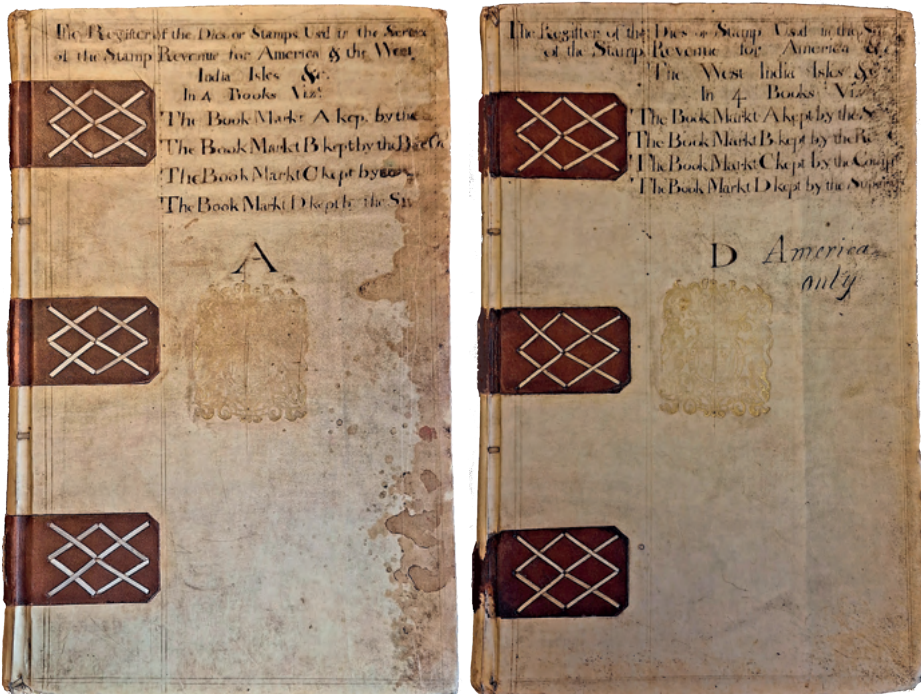 The Register of the Dies or Stamps Usd in the Service
of the Stamp Revenue for America & the West
India Isles &c.
In 4 Books Vizt.
The Book Markt A kep. by the
The Book Markt B kept by the
The Book Markt C kept by
The Book Markt D kept by the
A
The Register of the Dies or Stamp Usd in the
of the Stamp Revenue for America &c
The West India Isles &c
In 4 Books Viz
The Book Markt A kept by the
The Book Markt B kept by the
The Book Markt C kept by the
The Book Markt D kept by the
D America
only